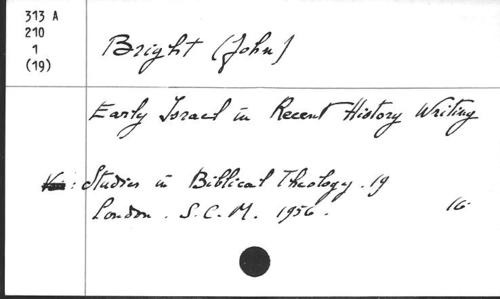 313 A
210
1
(19)
Bright (John)
Early Israel in Recent History Writing
: Studies in Biblical Theology. 19
London. S.C.M. 1956.
16